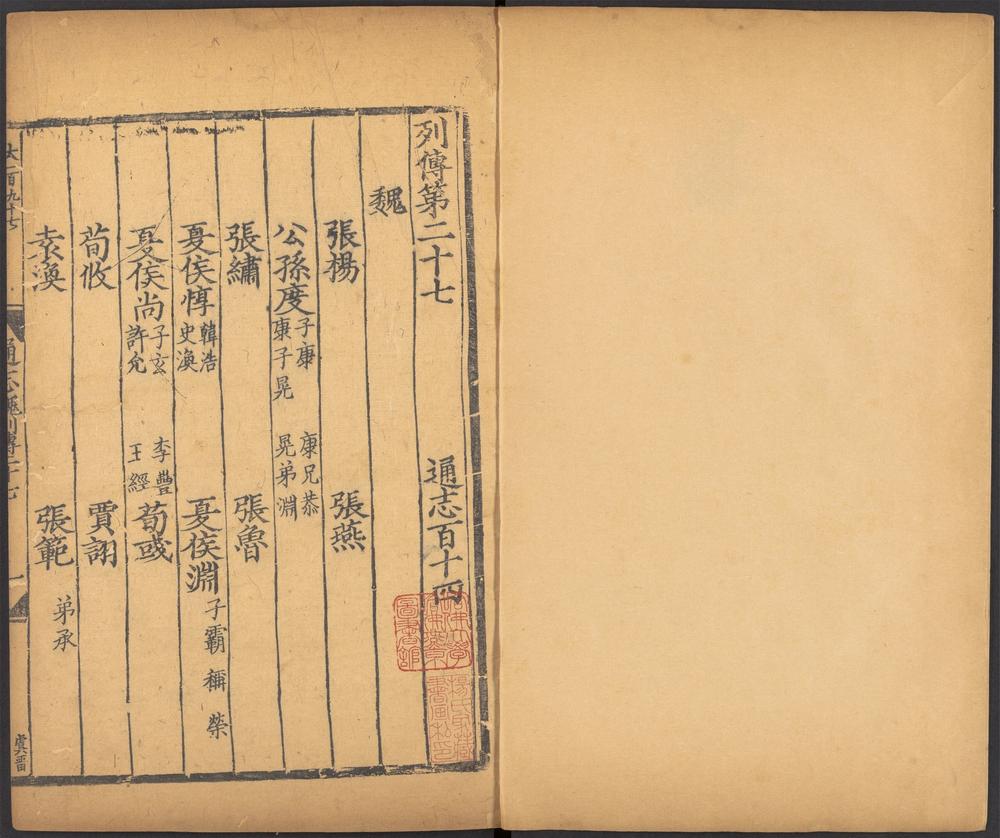 列傳第二十七 通志百十四
魏
張楊 張燕
公孫度 子康 康子晃 康兄恭 晃弟淵
張繡 張魯
夏侯惇 韓浩 史渙 夏侯淵 子霸 稱 榮
夏侯尚 子玄 許允 李豐 王經 荀彧
荀攸 賈詡
袁渙 張範 弟承
六百九十七 通志魏列傳二十七 一
哈佛大學哈佛燕京圖書館